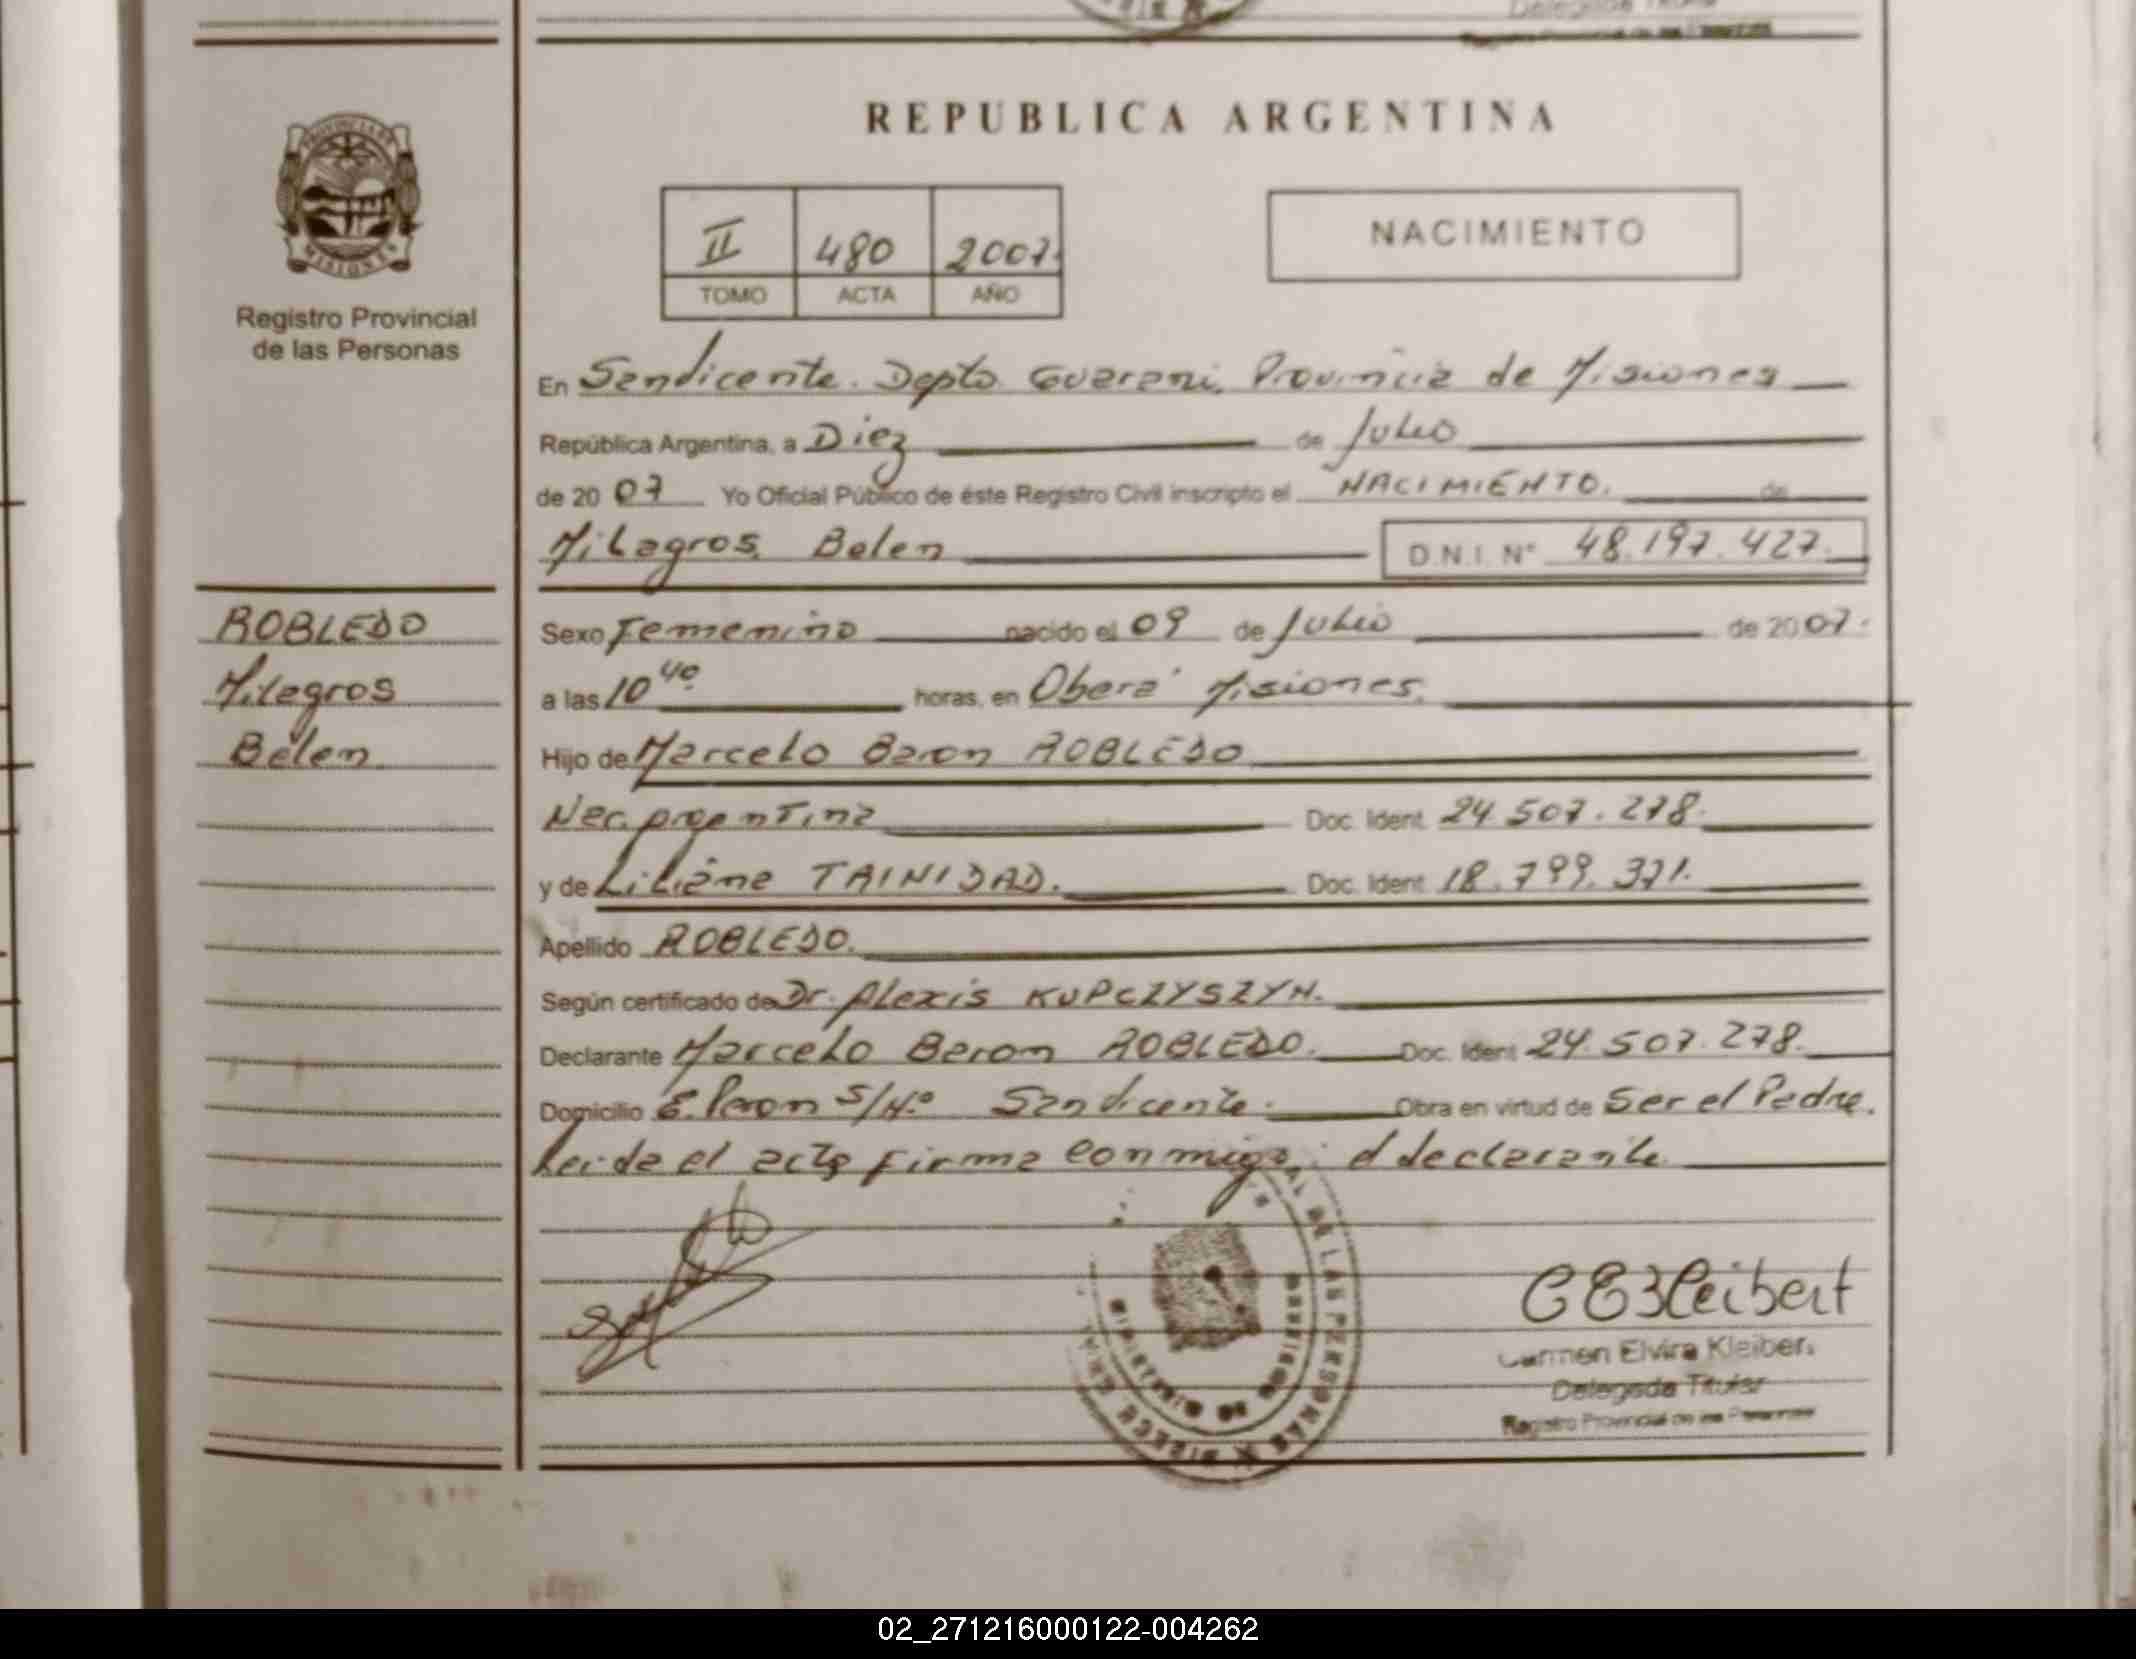 REPUBLICA ARGENTINA
PROVINCIA DE
MISIONES
Registro Provincial
de las Personas
II 480 2007.
TOMO ACTA AÑO
NACIMIENTO
En Sandicente. Depto Guarani. Provincia de Misiones
República Argentina, a Diez de Julio
de 20 07 Yo Oficial Público de éste Registro Civil inscripto el NACIMIENTO. de
Milagros Belen D.N.I. N° 48.197.427.
ROBLEDO
Milagros
Belen
Sexo Femenino nacido el 09 de Julio de 2007.
a las 10 40 horas, en Oberá Misiones.
Hijo de Marcelo Beron ROBLEDO
Nac. argentina Doc. Ident. 24.507.278.
y de Liliana TRINIDAD. Doc. Ident. 18.799.371.
Apellido ROBLEDO.
Según certificado de Dr. Alexis KUPCZYSZYN.
Declarante Marcelo Beron ROBLEDO. Doc. Ident. 24.507.278.
Domicilio E. Peron S/N.° Sandicente. Obra en virtud de Ser el Padre.
Leida el acta firma conmigo, el declarante
DE LAS PERSONAS
CEKleibert
Carmen Elvira Kleiber
Delegada Titular
Registro Provincial de las Personas
02_271216000122-004262